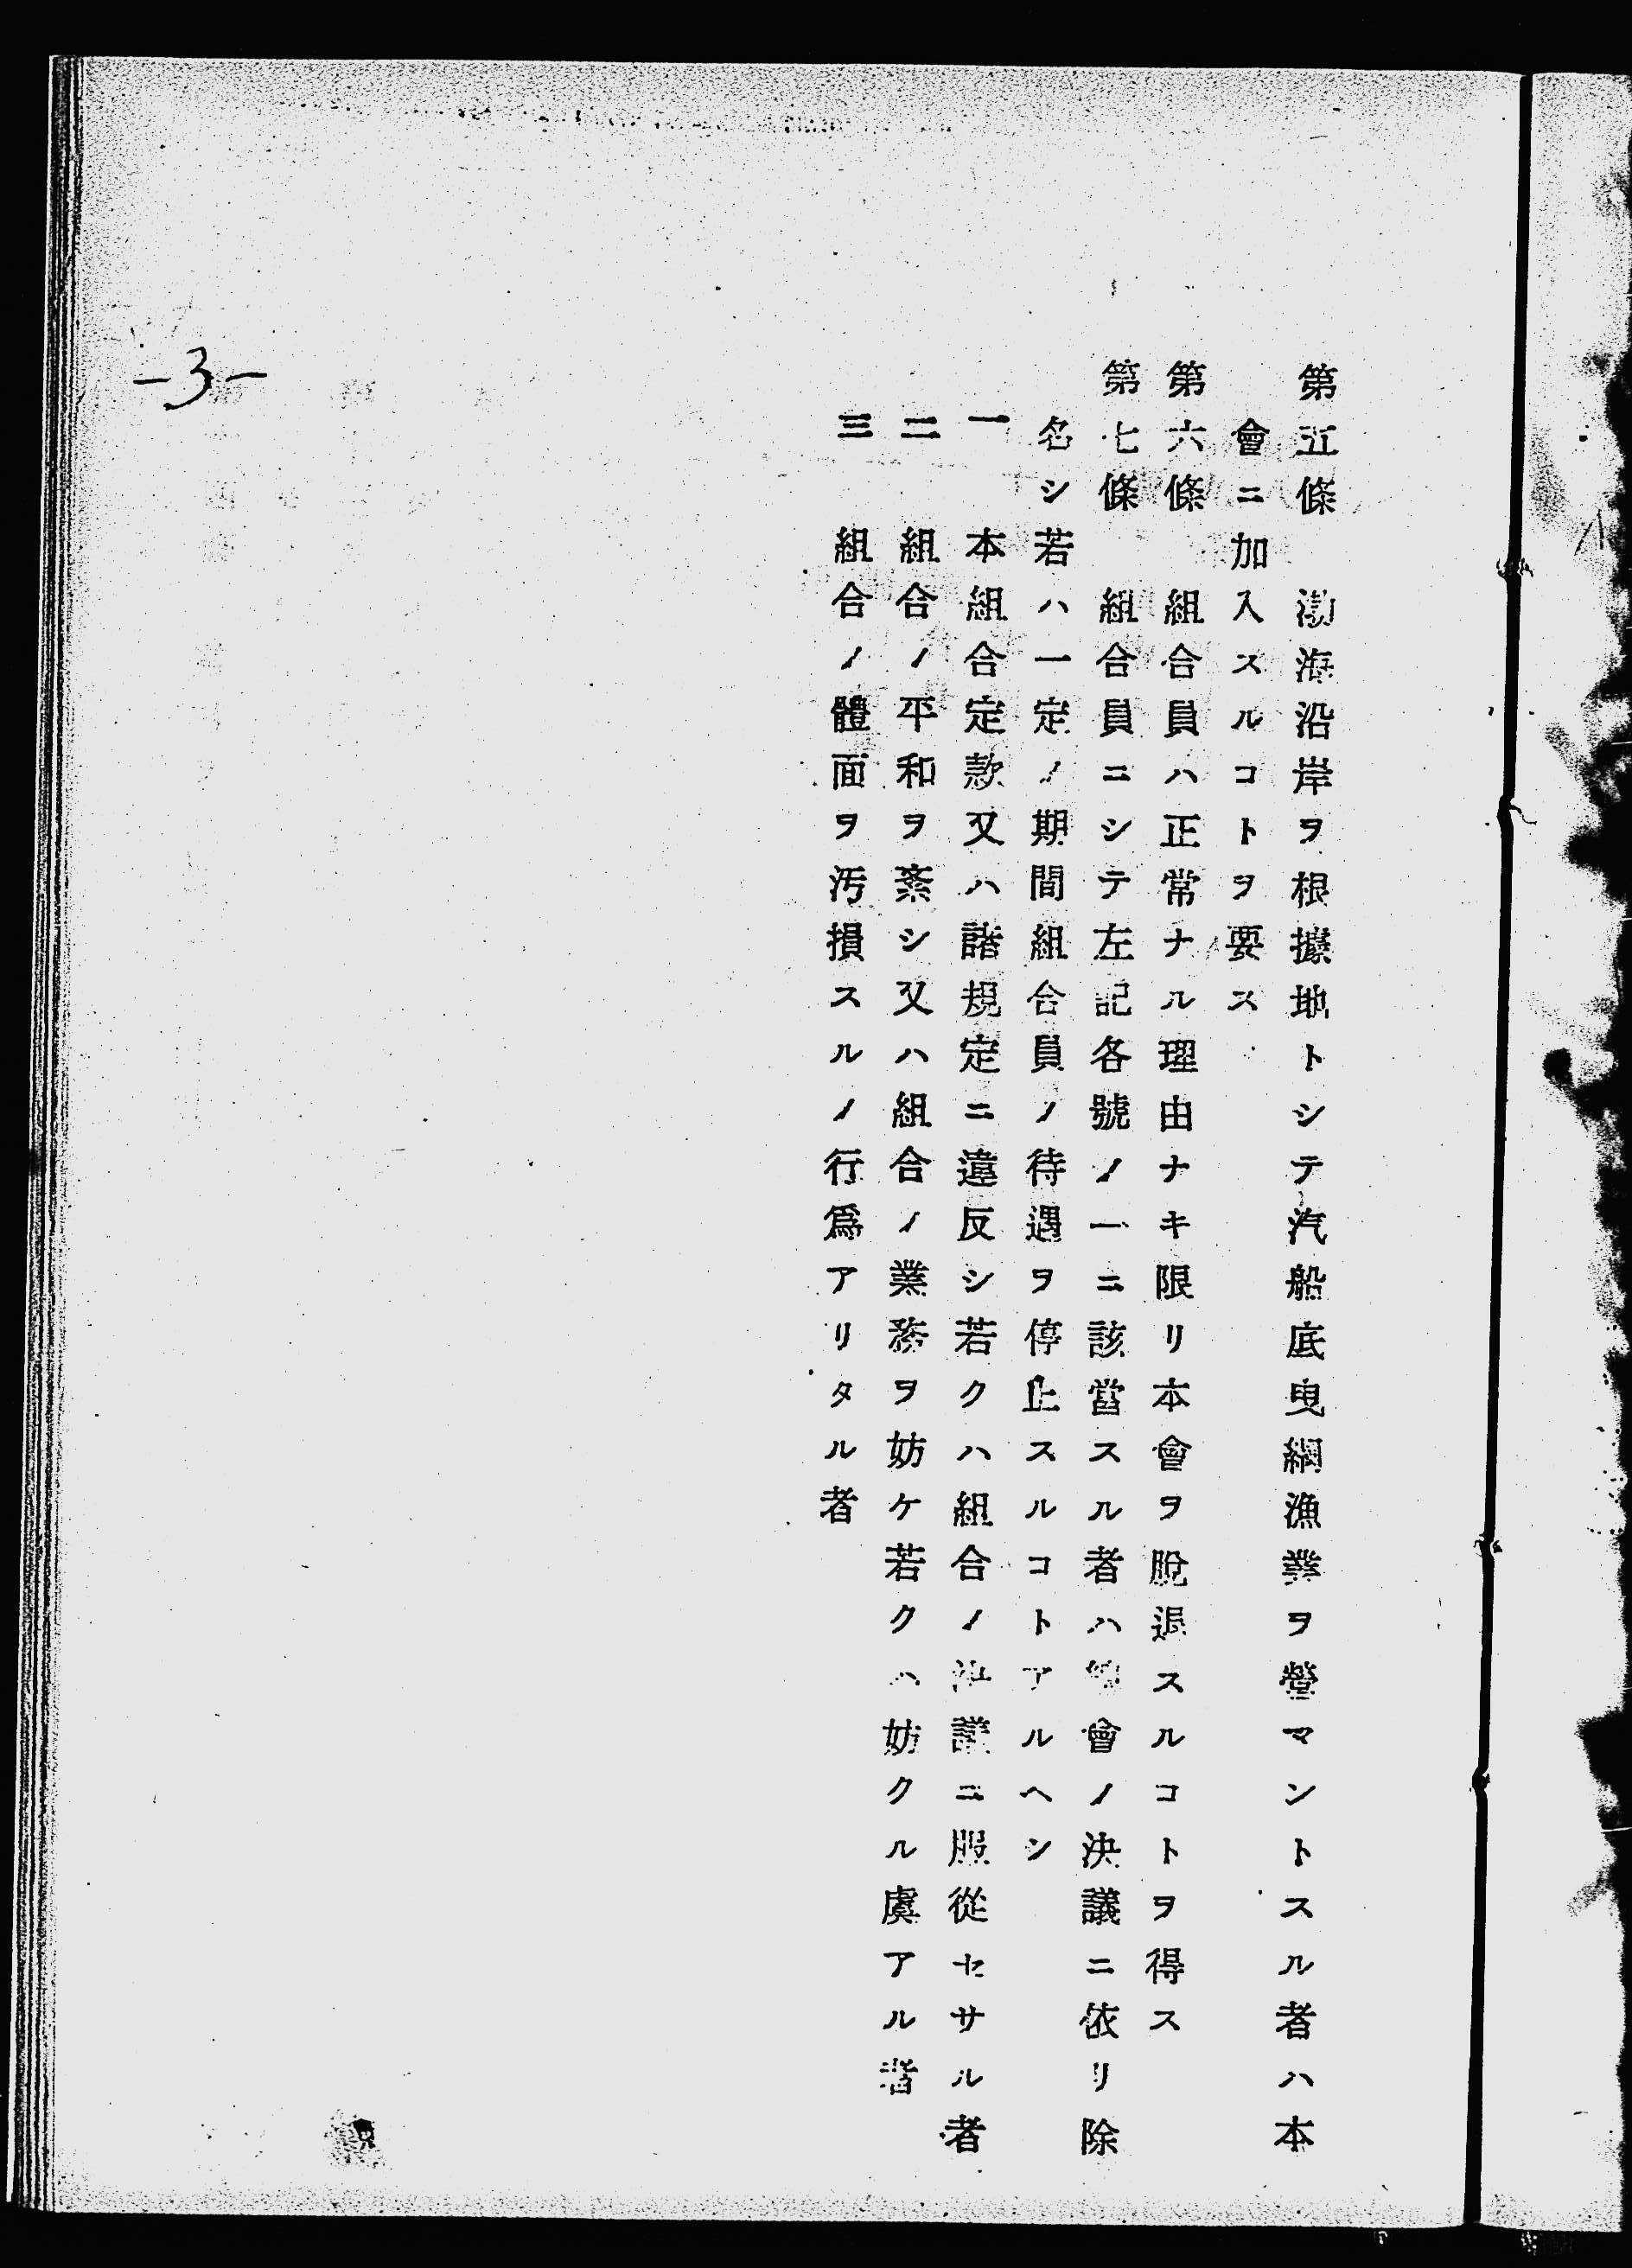 第五條 渤海沿岸ヲ根據地トシテ汽船底曳網漁業ヲ營マントスル者ハ本
會ニ加入スルコトヲ要ス
第六條 組合員ハ正常ナル理由ナキ限リ本會ヲ脫退スルコトヲ得ス
第七條 組合員ニシテ左記各號ノ一ニ該當スル者ハ總會ノ決議ニ依リ除
名シ若ハ一定ノ期間組合員ノ待遇ヲ停止スルコトアルヘシ
一 本組合定款又ハ諸規定ニ違反シ若クハ組合ノ決議ニ服從セサル者
二 組合ノ平和ヲ紊シ又ハ組合ノ業務ヲ妨ケ若クハ妨クル虞アル者
三 組合ノ體面ヲ汚損スルノ行爲アリタル者
-3-